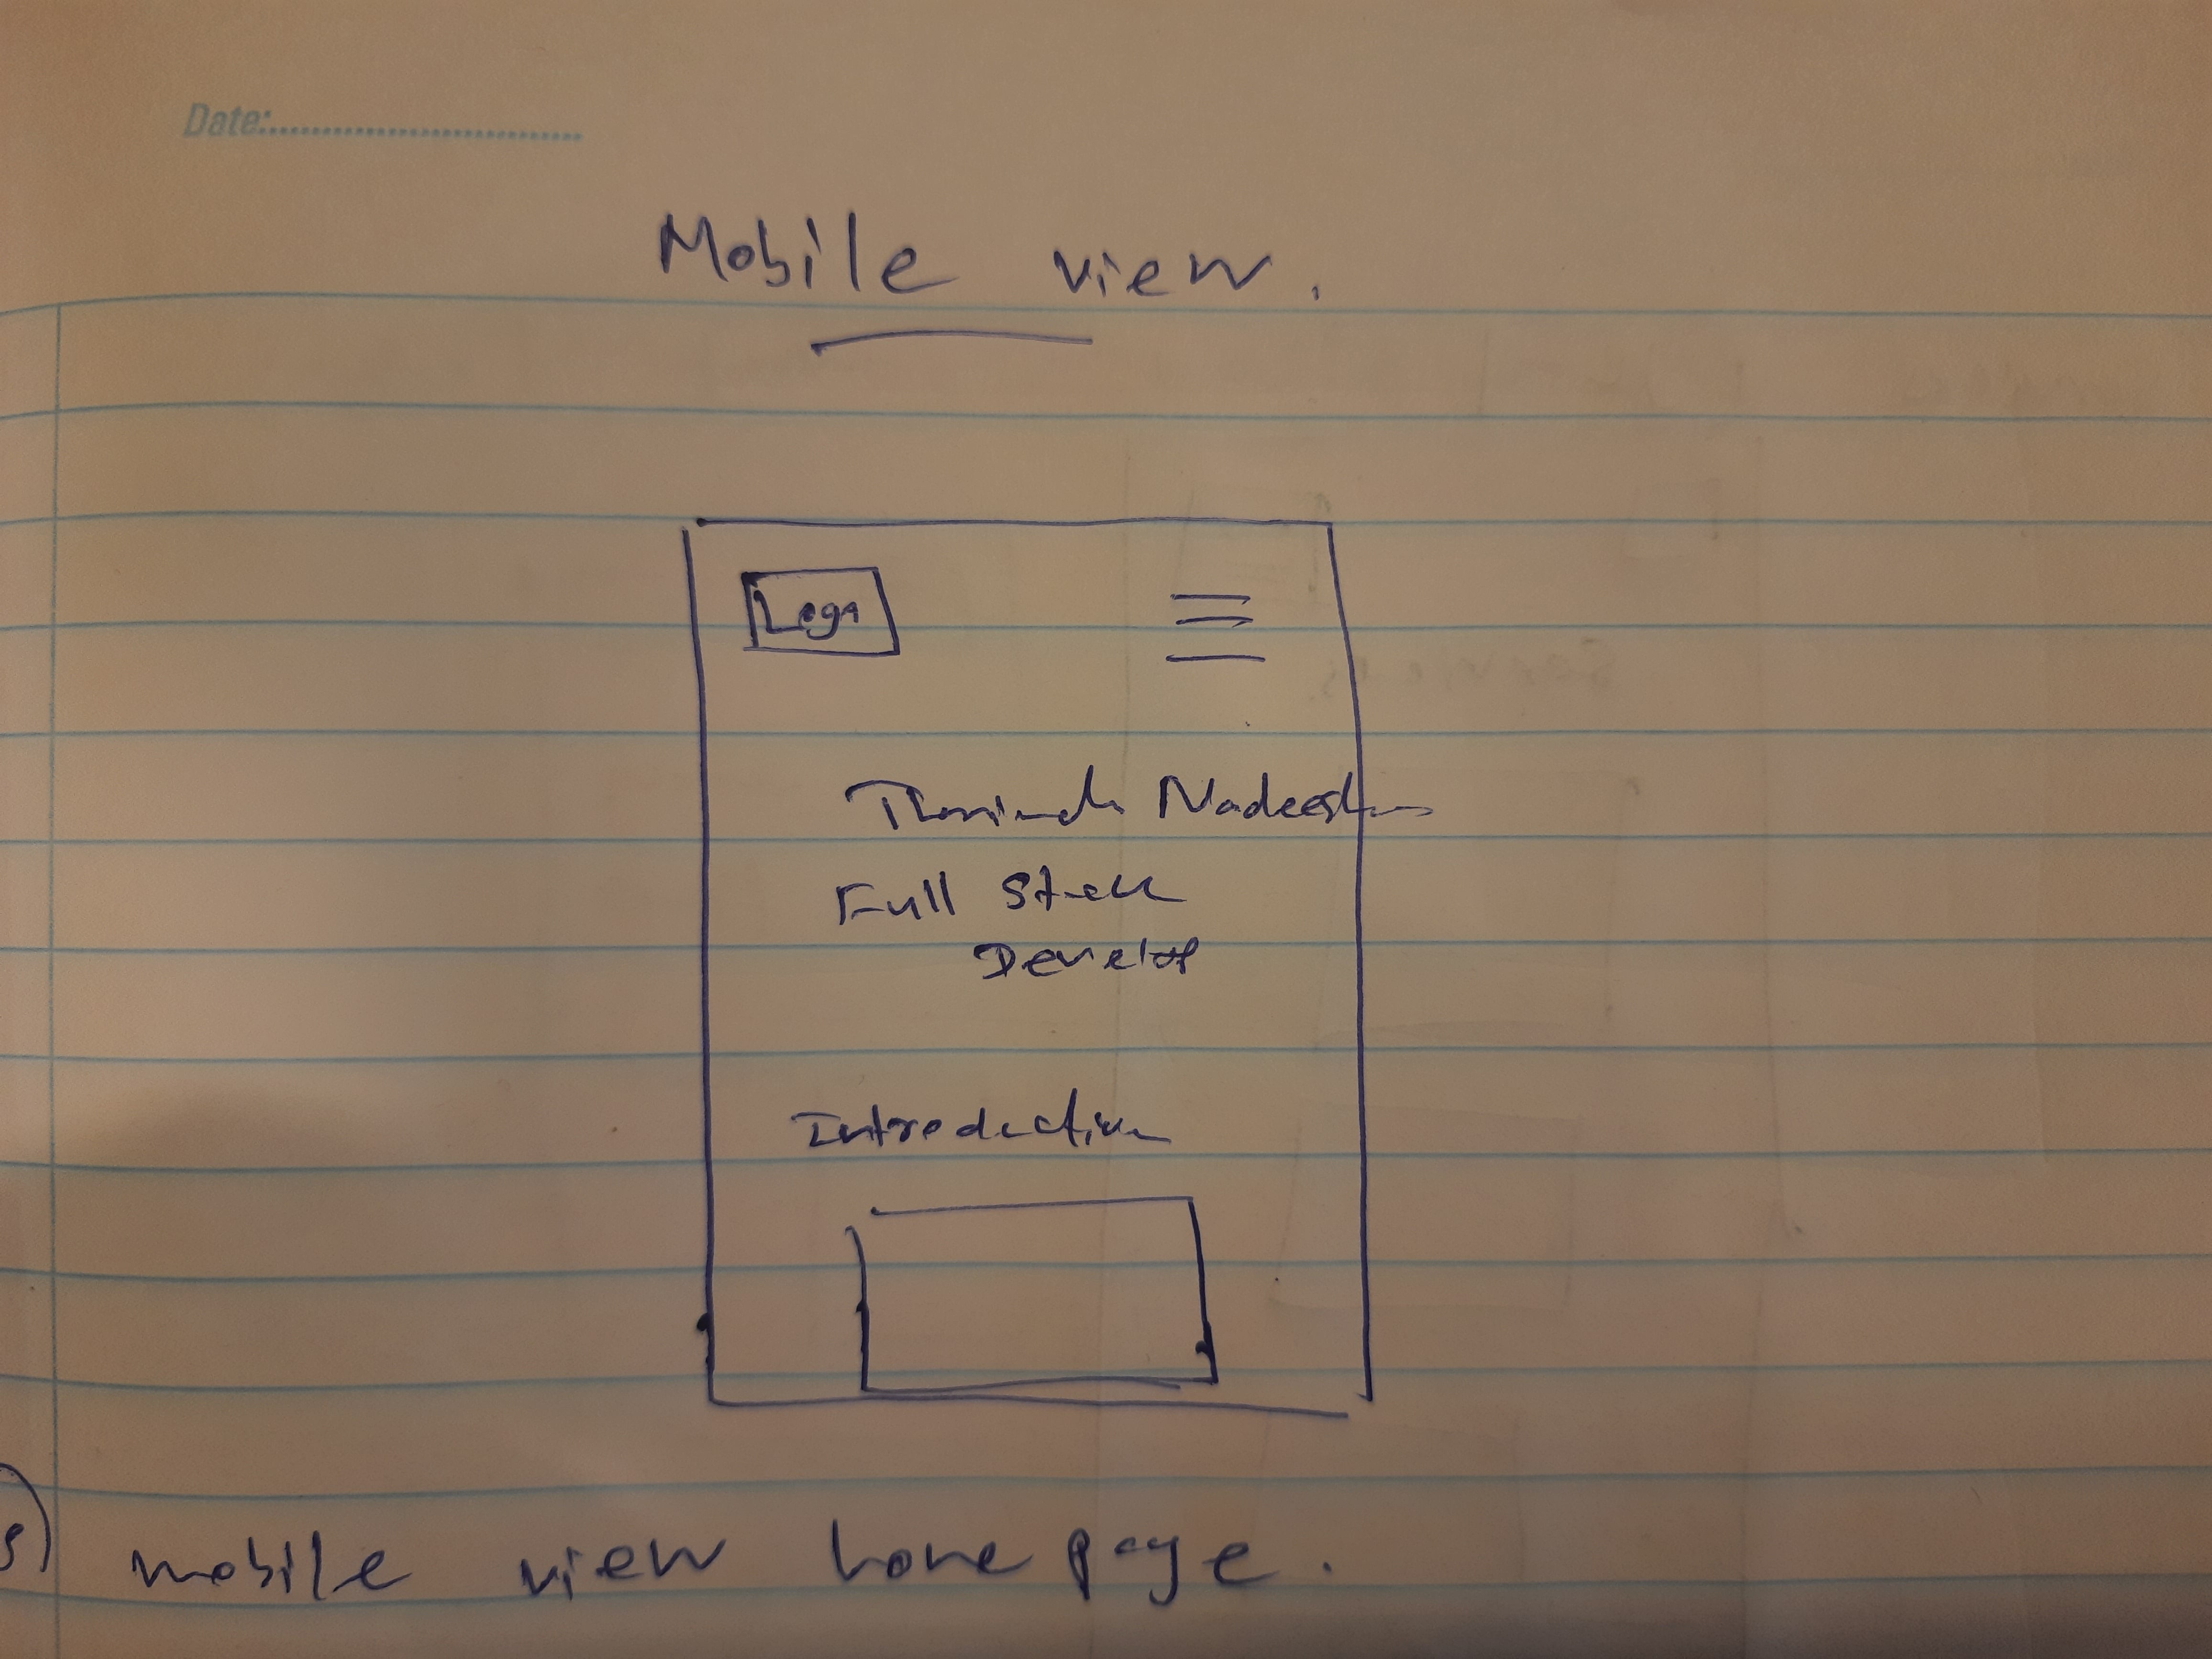 Date:
Mobile view.
Logo
Nadeesh
Full Stack
Develop
Introduction
mobile view home page.